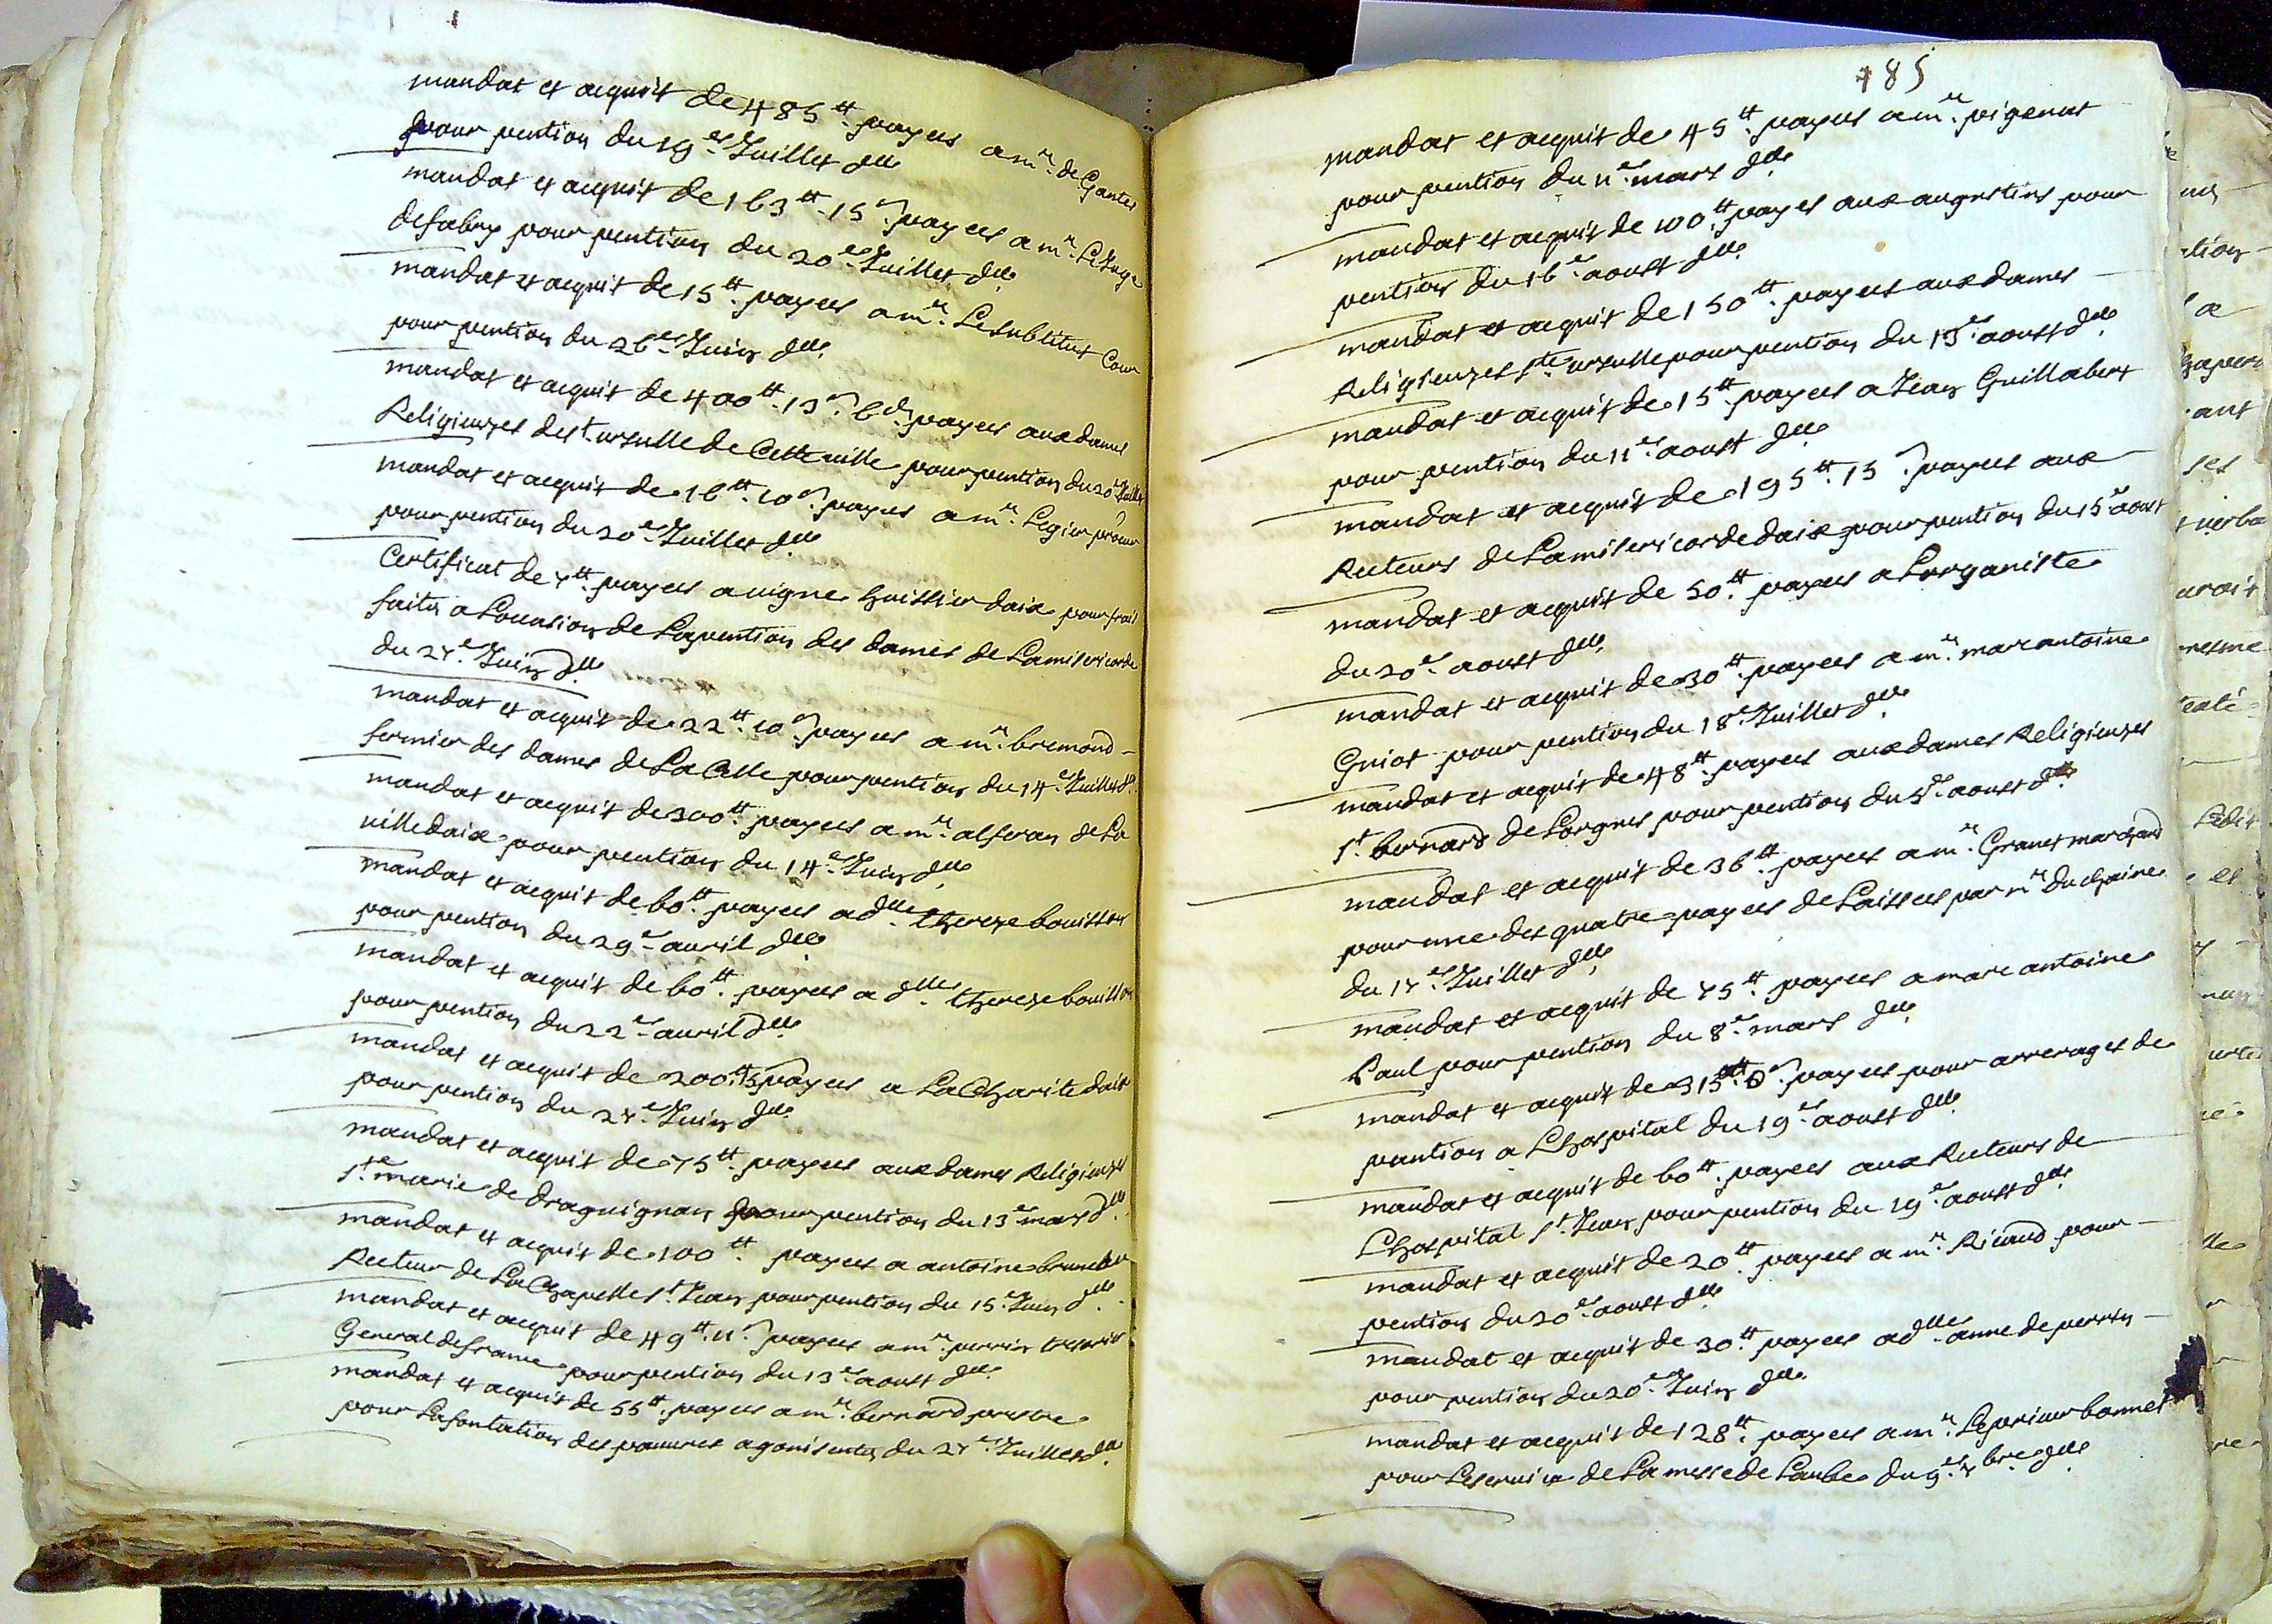 mandat et acquit de 485 tt. payees a mr. de Gantes
pour pention du 19e. Juillet dlle
mandat et acquit de 163 tt. 15 s payees a mr. Le Juge
defabry pour pention du 20e. Juillet dlle.
mandat et acquit de 15 tt. payees a mr. Le Substitut Cour
pour pention du 26e. Juin dlle.
mandat et acquit de 400 tt. 13 s 6 d payees aux dames
Religieuzes de st ursulle de Cette ville pour pention du 20e Juillet
mandat et acquit de 16 tt. 10 s payees a mr. Legier
pour pention du 20e. Juillet dlle.
Certificat de 7 tt. payees a vigne huissier daix pour frais
faits a Locasion de Lapention des dames de Lamisericorde
du 27e. Juin dlle.
mandat et acquit de 22 tt. 10 s payees a mr. bremond
fermier des dames de La Celle pour pention du 14e. Juillet dlle.
mandat et acquit de 300 tt. payees a mr. alferan de La
ville daix pour pention du 14e. Juin dlle.
mandat et acquit de 60 tt. payees a dlle. therese bouillon
pour pention du 29e. avril dlle.
mandat et acquit de 60 tt. payees a dlle. therese bouillon
pour pention du 22e. avril dlle.
mandat et acquit de 200 tt. payees a La Charite daix
pour pention du 27e. Juin dlle.
mandat et acquit de 75 tt. payees aux dames Religieuzes
ste. marie de draguignan pour pention du 13e mars dlle.
mandat et acquit de 100 tt. payees a antoine
Recteur de La Chapelle st. Jean pour pention du 15e Juin dlle.
mandat et acquit de 49 tt. 11 s payees a mr. perrin tresorier
General de france pour pention du 13e. aoust dlle.
mandat et acquit de 55 tt. payees a mr. bernard prestre
pour Lafontation des pauvres agonisents du 27e. Juillet dlle.
485
mandat et acquit de 45 tt. payees a mr. pigenat
pour pention du 11e. mars dlle.
mandat et acquit de 100 tt. payees aux augustins pour
pention du 16e. aoust dlle.
mandat et acquit de 150 tt. payees aux dames
Religieuzes ste. ursulle pour pention du 15e. aoust dlle.
mandat et acquit de 15 tt. payees a Jean Guillabert
pour pention du 11e. aoust dlle.
mandat et acquit de 195 tt. 15 s payees aux
Recteurs de Lamisericorde daix pour pention du 15e aoust
mandat et acquit de 50 tt. payees a Lorganiste
du 20e. aoust dlle.
mandat et acquit de 30 tt. payees a mr. marcantoine
Guiot pour pention du 18e. Juillet dlle.
mandat et acquit de 48 tt. payees aux dames Religieuzes
st. bernard de Lorgues pour pention du 5e. aoust dlle.
mandat et acquit de 36 tt. payees a mr. Granet marchand
pour une des quatre payees de Laissees par mr. duchaine
du 17e. Juillet dlle.
mandat et acquit de 75 tt. payees a marc antoine
Paul pour pention du 8e. mars dlle.
mandat et acquit de 315 tt. payees pour arrerages de
pantion a Lhospital du 19e. aoust dlle.
mandat et acquit de 60 tt. payees aux Recteurs de
Lhospital st. Jean pour pention du 19e. aoust dlle.
mandat et acquit de 20 tt. payees a mr. Ricaud pour
pention du 20e. aoust dlle.
mandat et acquit de 30 tt. payees a dlle. anne de perrin
pour pention du 20e. Juin dlle.
mandat et acquit de 128 tt. payees a mr. Leprieur bonnet
pour Leservice de La messe de Laube du 9e. 7bre. dlle.